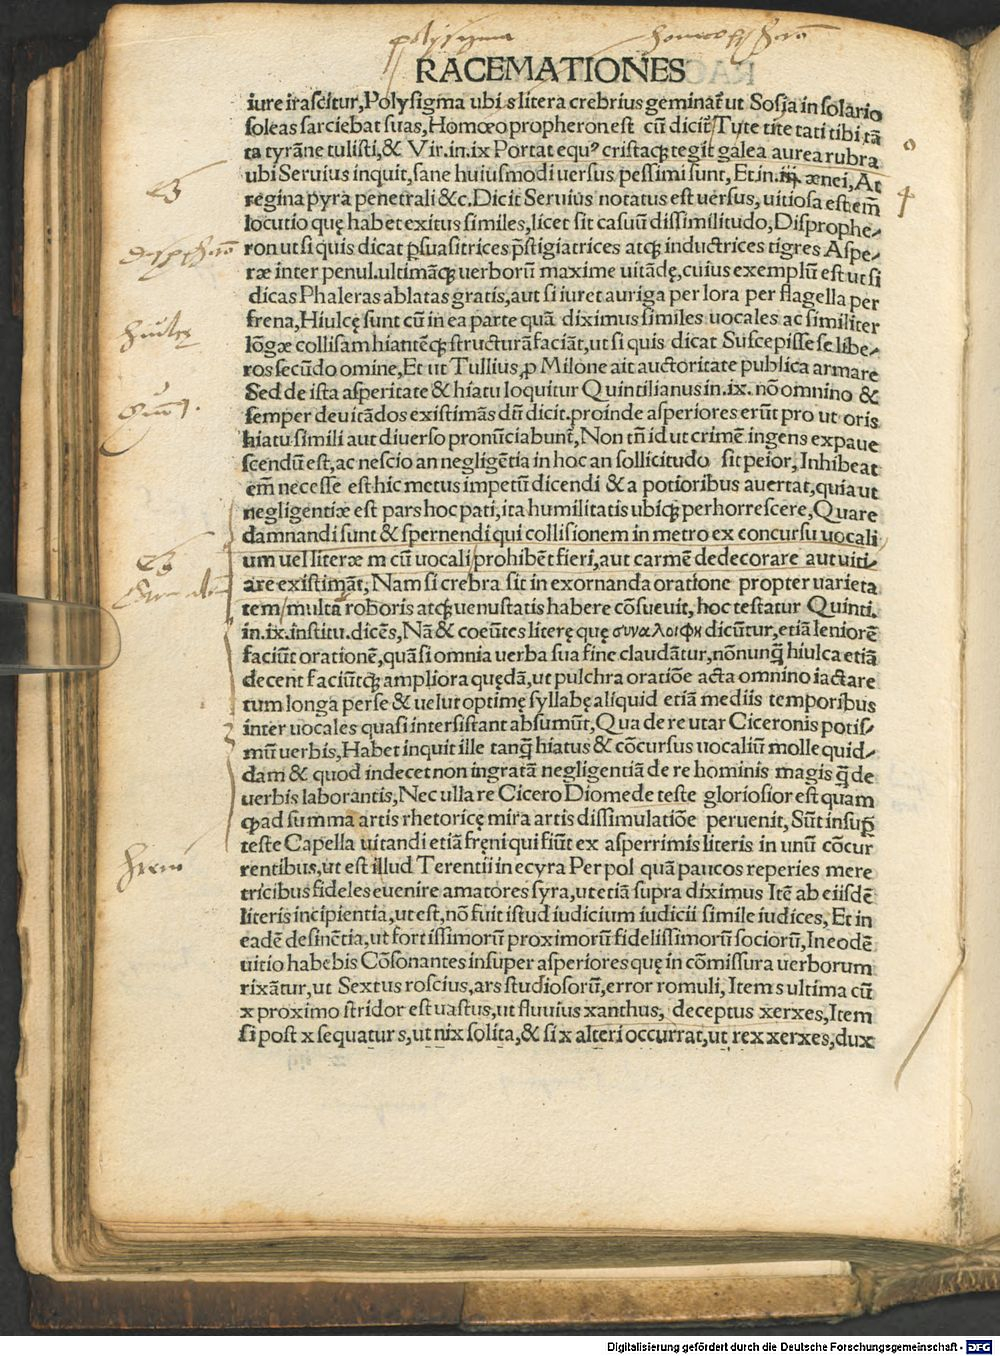 polysigma
RACEMATIONES
iure irascitur,Polysigma ubi s litera crebrius geminat᷑ ut Sosia in solario
soleas sarciebat suas,Homœopropheron est cū dicit᷑ Tyte tite tati tibi tā
ta tyrāne tulisti,& Vir.in.ix Portat equꝰ cristaqꝫ tegit galea aurea rubra
ubi Seruius inquit,sane huiusmodi uersus pessimi sunt, Et in.iiij. ænei,At
regina pyra penetrali &c.Dicit Seruius notatus est uersus, uitiosa est em̄
locutio quę habet exitus similes,licet sit casuū dissimilitudo,Disprophe-
ron ut si quis dicat ꝑsuasitrices p̄stigiatrices atqꝫ inductrices tigres Aspe-
ræ inter penul.ultimāqꝫ uerborū maxime uitādę,cuius exemplū est ut si
dicas Phaleras ablatas gratis,aut si iuret auriga per lora per flagella per
frena,Hiulcę sunt cū in ea parte quā diximus similes uocales ac similiter
lōgæ collisam hiantēqꝫ structurā faciāt,ut si quis dicat Suscepisse se libe-
ros secūdo omine,Et ut Tullius ꝓ Milone ait auctoritate publica armare
Sed de ista asperitate & hiatu loquitur Quintilianus in.ix. nō omnino &
semper deuitādos existimās dū dicit.proinde asperiores erūt pro ut oris
hiatu simili aut diuerso pronūciabunt᷑, Non tn̄ id ut crimē ingens expaue
scendū est,ac nescio an negligētia in hoc an sollicitudo sit peior, Inhibeat
em̄ necesse est hic metus impetū dicendi & a potioribus auertat,quia ut
negligentiæ est pars hoc pati,ita humilitatis ubiqꝫ perhorrescere,Quare
damnandi sunt & spernendi qui collisionem in metro ex concursu uocali
um uel literæ m cū uocali prohibēt fieri,aut carmē dedecorare aut uiti-
are existimāt, Nam si crebra sit in exornanda oratione propter uarieta
tem multā roboris atqꝫ uenustatis habere cōsueuit, hoc testatur Quinti.
in.ix.institu.dicēs,Nā & coeūtes literę quę συναλοιφη dicūtur,etiā leniorē
faciūt orationē,quā si omnia uerba sua fine claudātur,nōnunꝗ̄ hiulca etiā
decent faciūtqꝫ ampliora quędā,ut pulchra oratiōe acta omnino iactare
tum longa per se & uelut optimę syllabę aliquid etiā mediis temporibus
inter uocales quasi intersistant absumūt,Qua de re utar Ciceronis potis-
mū uerbis,Habet inquit ille tanꝗ̄ hiatus & cōcursus uocaliū molle quid-
dam & quod indecet non ingratā negligentiā de re hominis magis ꝗ̄ de
uerbis laborantis,Nec ulla re Cicero Diomede teste gloriosior est quam
qꝫ ad summa artis rhetoricę mira artis dissimulatiōe peruenit, Sūt insuꝑ
teste Capella uitandi etiā fręni qui fiūt ex asperrimis literis in unū cōcur
rentibus,ut est illud Terentii in ecyra Per pol quā paucos reperies mere
tricibus fideles euenire amatores syra,ut etiā supra diximus Itē ab eiisdē
literis incipientia,ut est,nō fuit istud iudicium iudicii simile iudices, Et in
eadē desinētia,ut fortissimorū proximorū fidelissimorū sociorū,In eodē
uitio habebis Cōsonantes insuper asperiores quę in cōmissura uerborum
rixātur,ut Sextus roscius,ars studiosorū,error romuli, Item s ultima cū
x proximo stridor est uastus,ut fluuius xanthus, deceptus xerxes,Item
si post x sequatur s,ut nix solita,& si x alteri occurrat,ut rex xerxes,dux
Digitalisierung gefördert durch die Deutsche Forschungsgemeinschaft - DFG